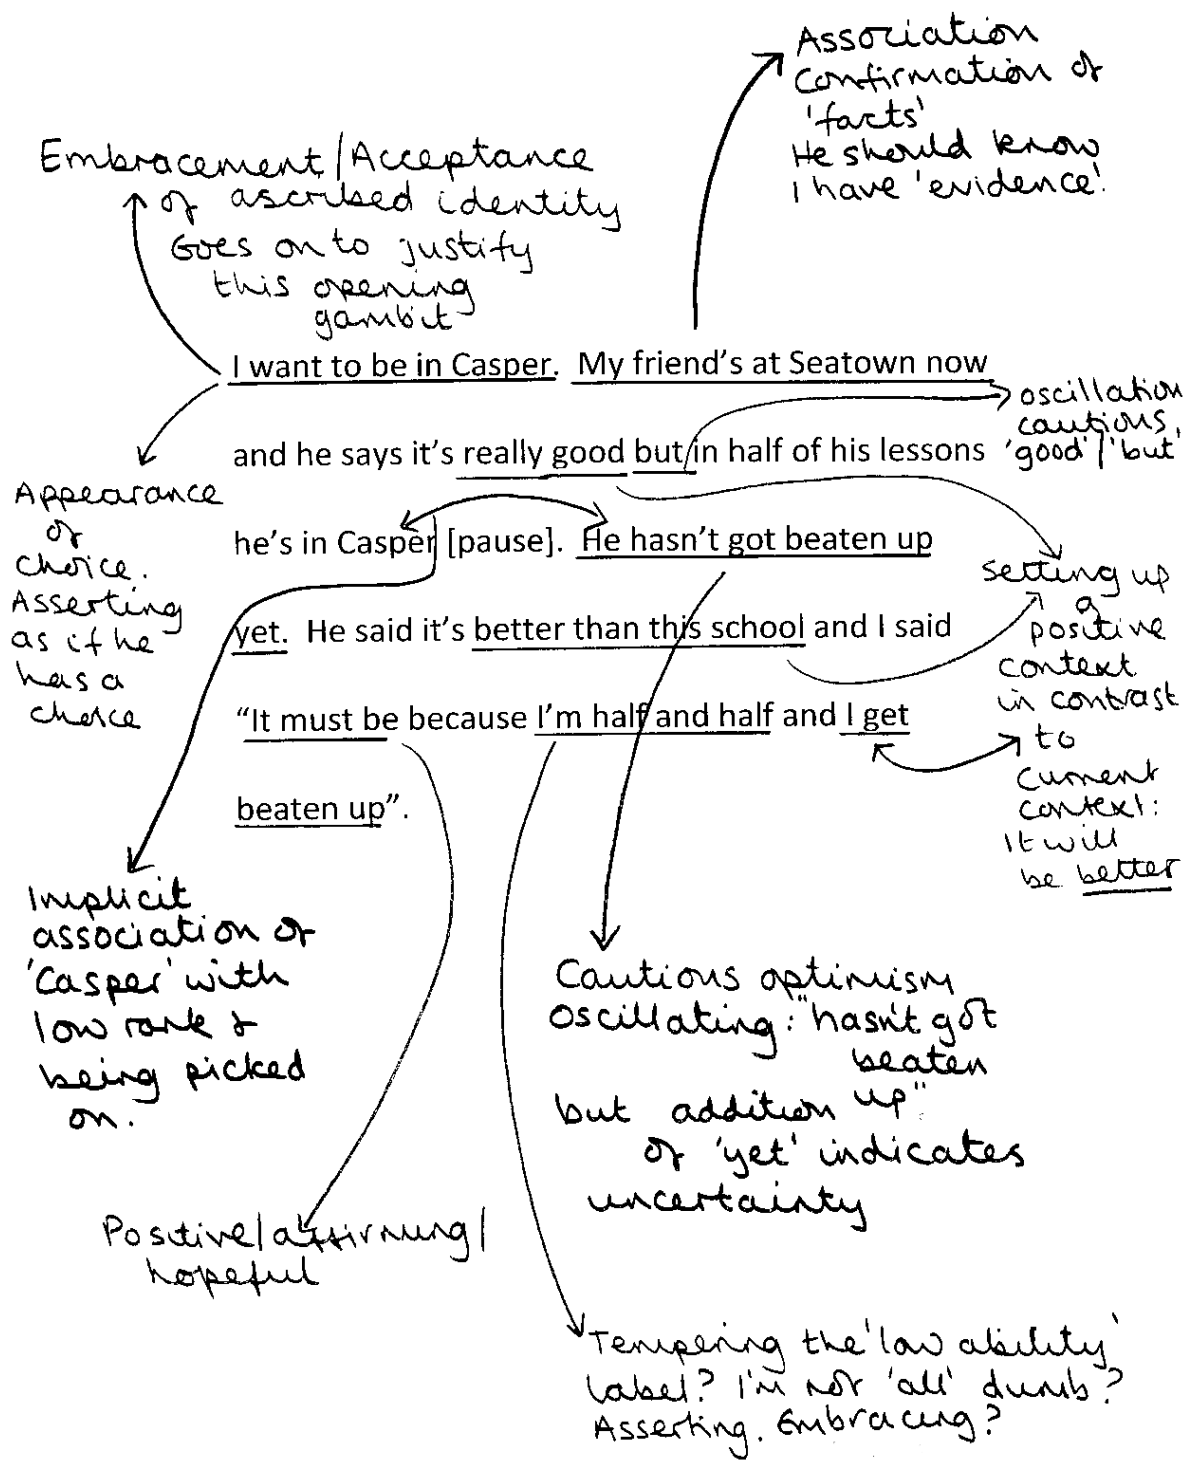 Association
Confirmation of
'facts'
He should know
I have 'evidence'.
Embracement/Acceptance
of ascribed identity
Goes on to justify
this opening
gambit
I want to be in Casper. My friend's at Seatown now
and he says it's really good but in half of his lessons
he's in Casper [pause]. He hasn't got beaten up
yet. He said it's better than this school and I said
“It must be because I'm half and half and I get
beaten up”.
oscillation
cautious,
'good'/'but'
Appearance
of
choice.
Asserting
as if he
has a
choice
setting up
a
positive
context
in contrast
to
current
context:
It will
be better
Implicit
association of
'Casper' with
low rank &
being picked
on.
Cautious optimism
oscillating: "hasn't got
beaten
up"
but addition
of 'yet' indicates
uncertainty
Positive/affirming/
hopeful
Tempering the 'low ability'
label? I'm not 'all' dumb?
Asserting. Embracing?